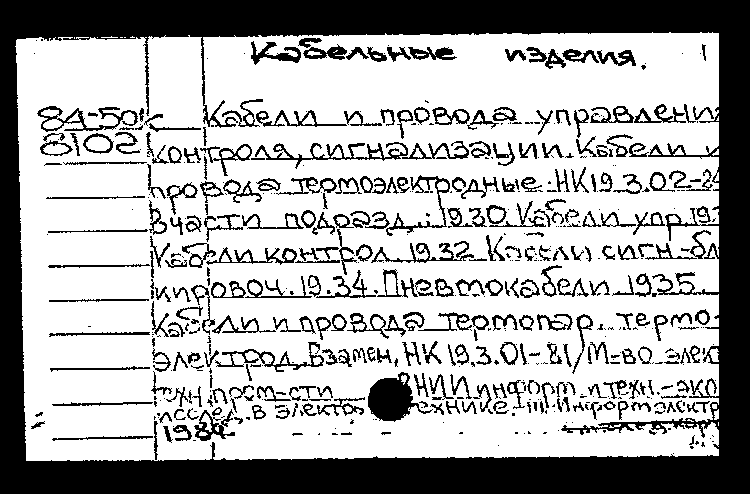 Кабельные изделия. 1
84-50к Кабели и провода управлени
8102 контроля, сигнализации. Кабели и
провода термоэлектродные. НК19.3.02-84
В части подразд.: 19.30. Кабели упр. 19.3
Кабели контрол. 19.32 Кабели сигн.-бл
кировоч. 19.34. Пневмокабели 1935.
Кабели и провода термопар. термо-
электрод. Взамен, НК 19.3.01-81/М-во элект
техн. пром-сти ВНИИ информ. и техн.-эко
исслед. в электро технике. Информэлектр
1984